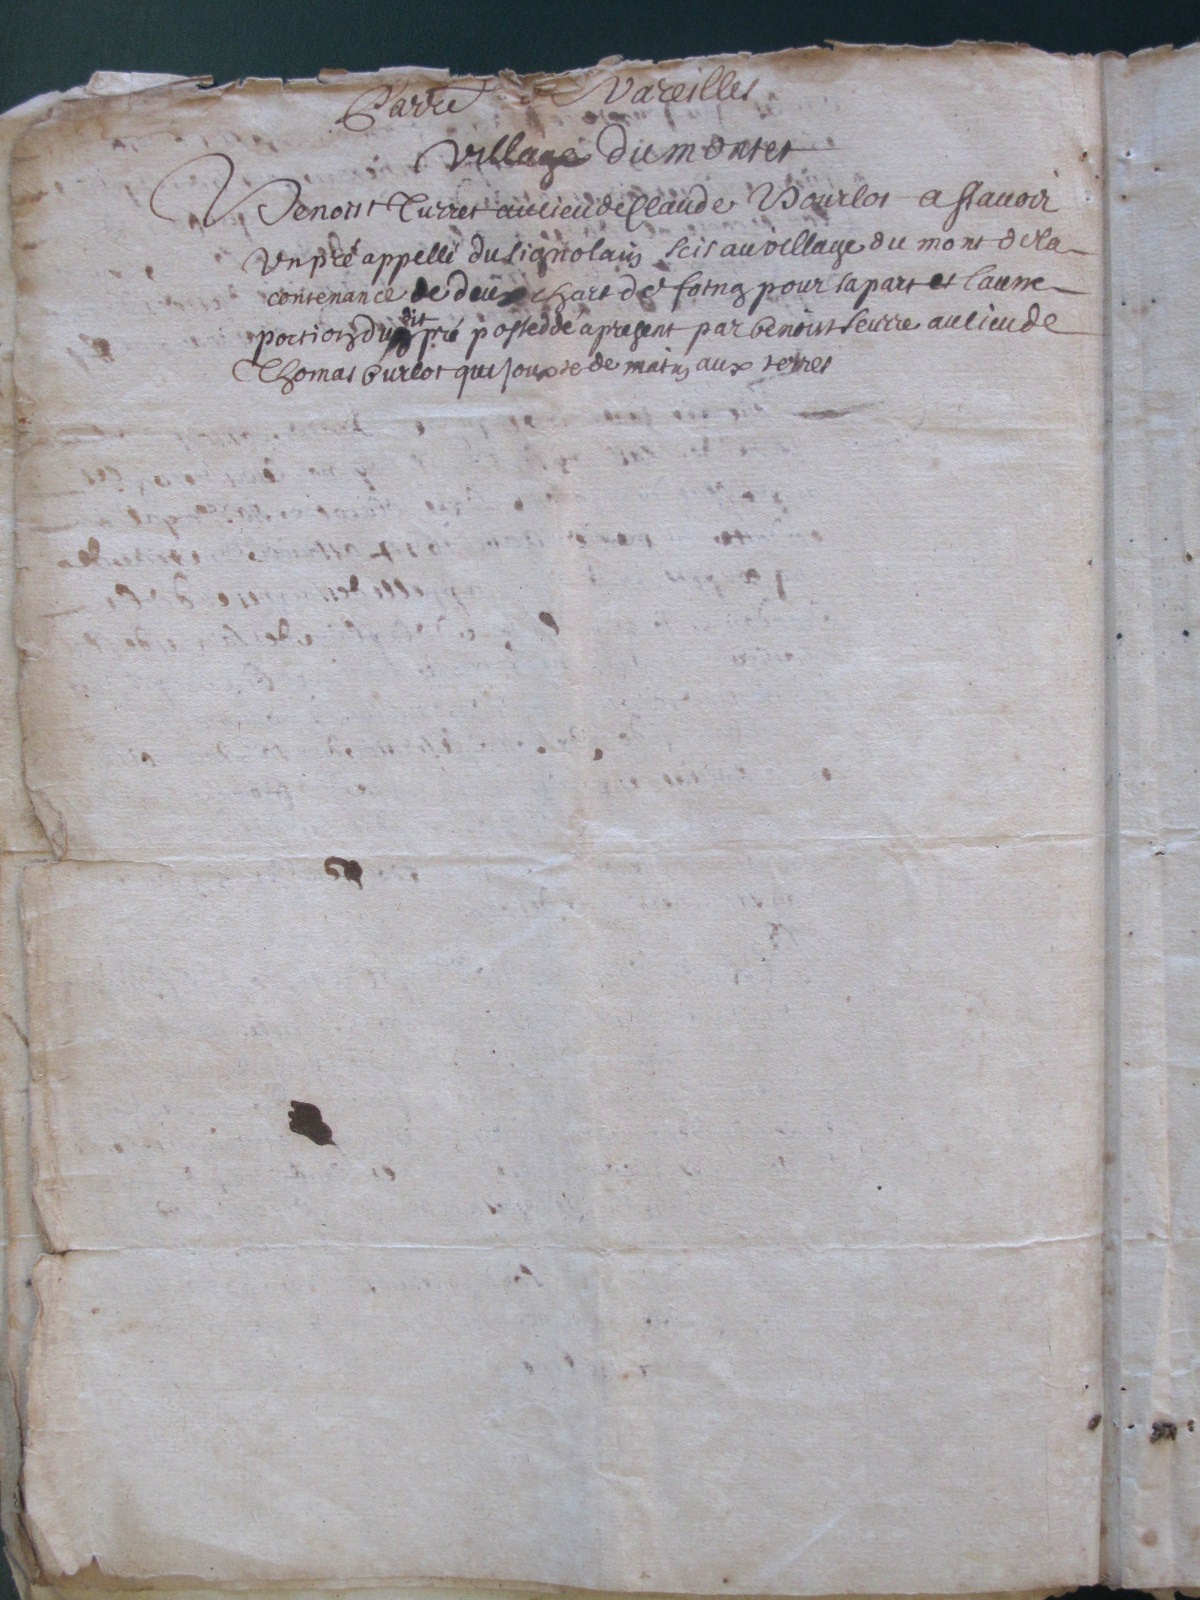 Parre de Vareilles
Village du montet
Benoist Turret au lieu de Claude Bourlot a scauoir
Vn pré appellé du Lignolain scis au village du mont de la
contenance de deux chart de foing pour sa part et l'aune
portion du dit pré possedde a present par benoist seurre au lieu de
Thomas burlot qui jouxte de matin aux terres